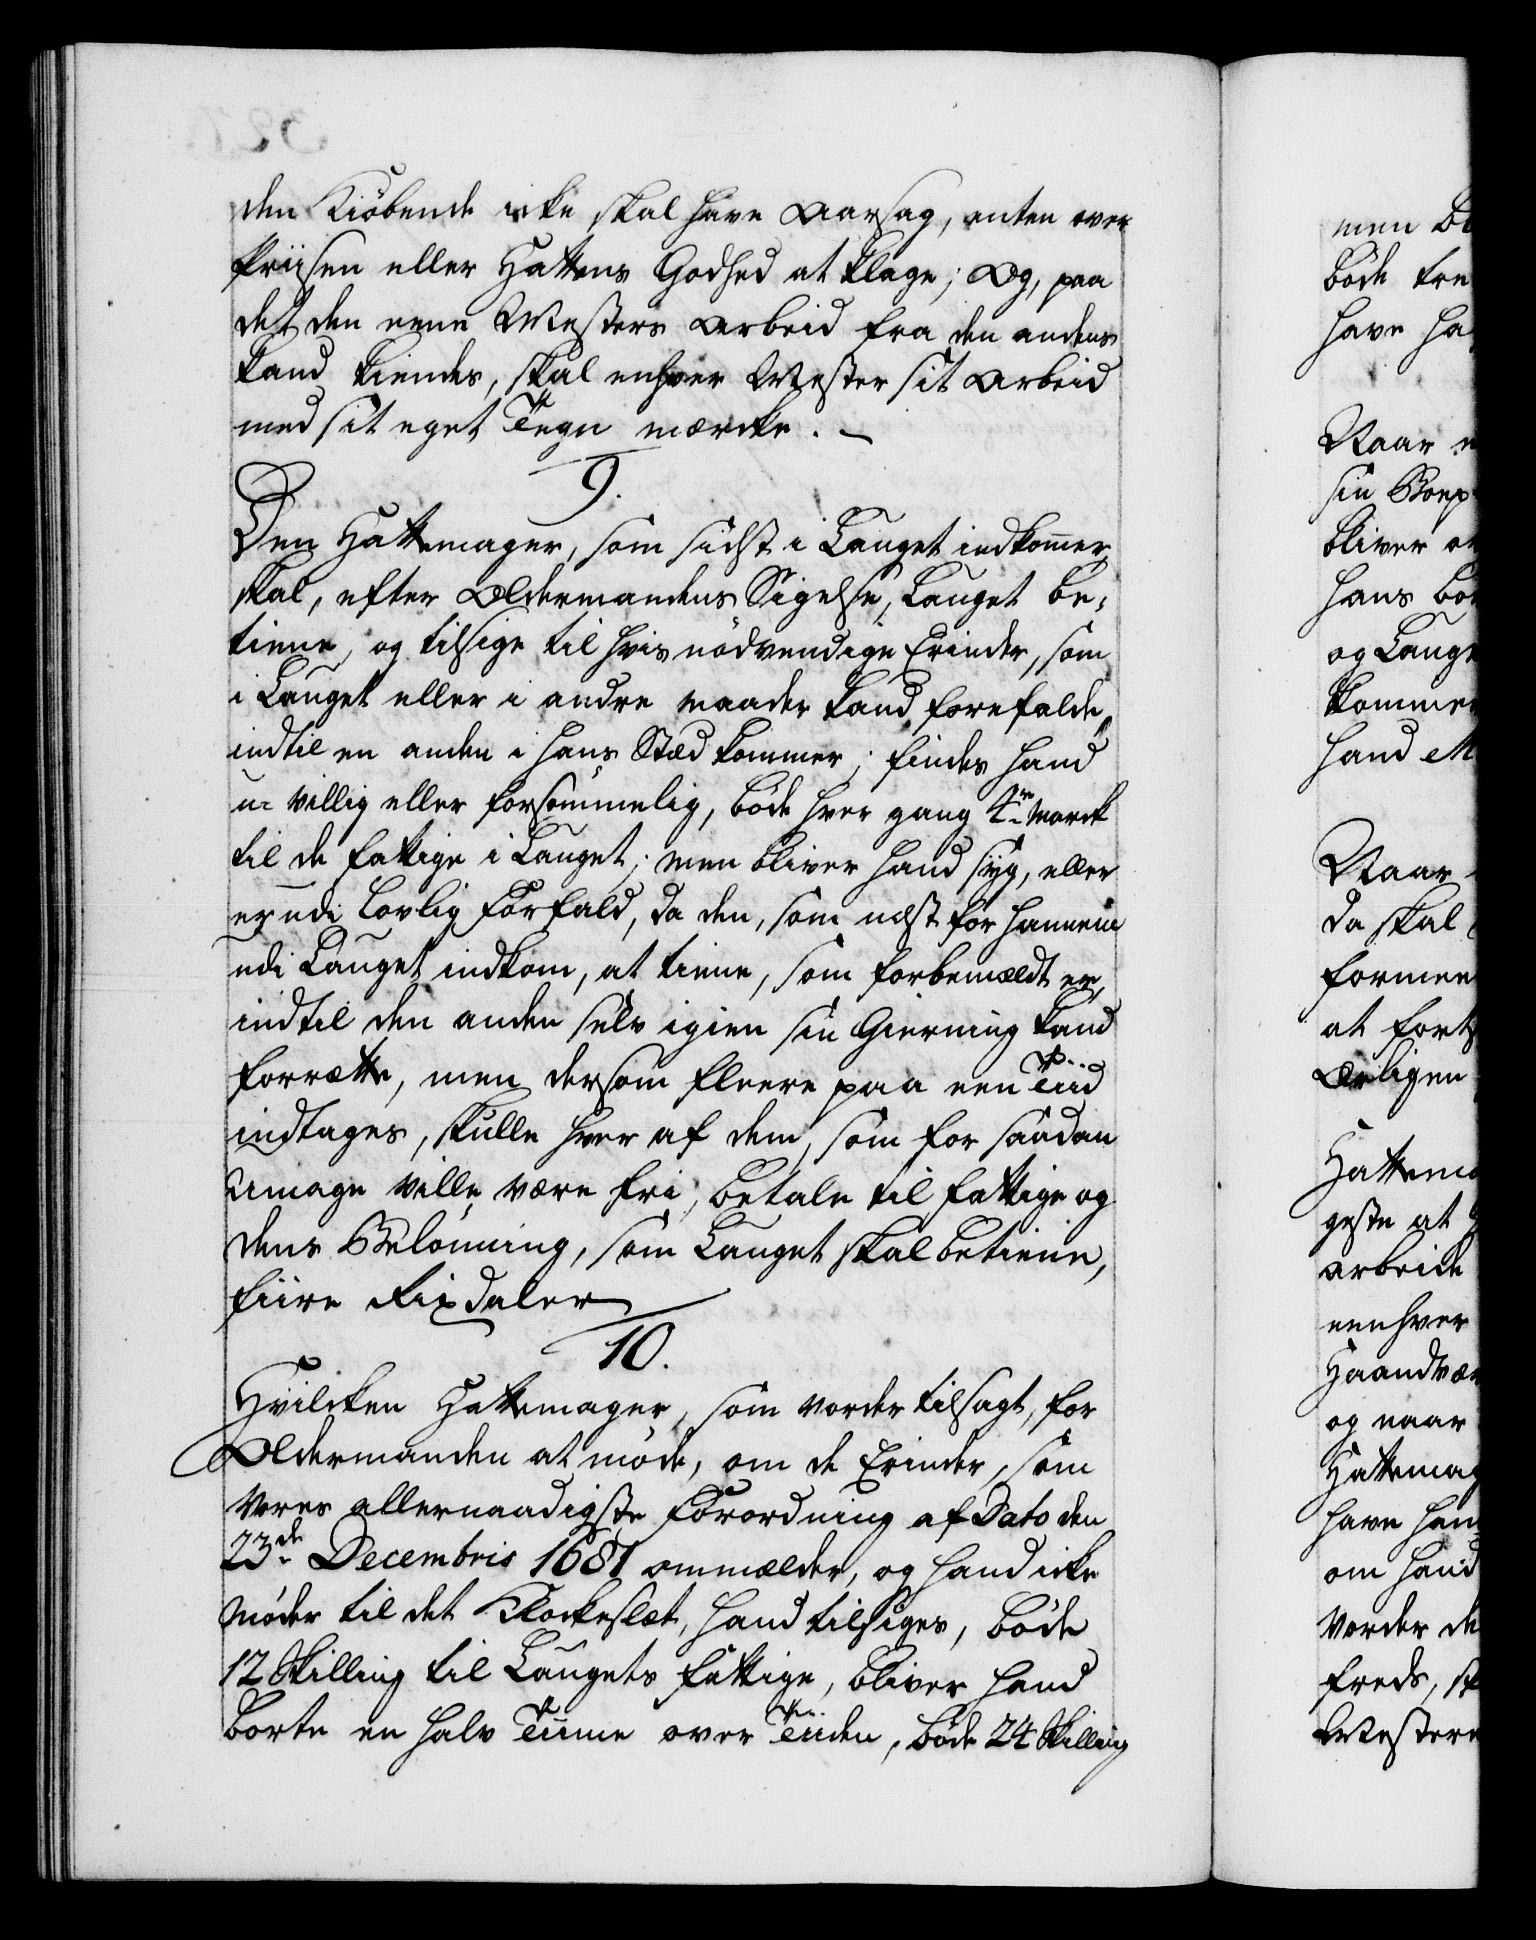 den Kiöbende icke skal have Aarsag, enten over
Priisen eller Hattens Godhed at klage; Og, paa
det den eene Mesters Arbeid fra den andens
kand kiendes, skal enhver Mester sit Arbeid
med sit eget Tegn mærcke.
9.
Den Hattemager, som sidst i Lauget indkommer,
skal, efter Oldermandens Sigelse, Lauget be-
tiene, og tilsige til hvis nödvendige Erinder, som
i Lauget eller i andre maader kand forefalde,
indtil en anden i hans Stæd kommer; findes hand
u-villig eller forsömmelig, böde hver gang 4re Marck
til de fattige i Lauget; men bliver hand syg, eller
er udi Lovlig Forfald, da den, som næst for hannem
udi Lauget indkom, at tiene, som forbemældt er,
indtil den anden selv igien sin Gierning kand
forrætte, men dersom fleere paa een Tiid
indtages, skulle hver af dem, som for saadan
Umage ville være fri, betale til fattige og
dens Belönning, som Lauget skal betiene,
fiire Rixdaler
10.
Hvilcken Hattemager, som vorder tilsagt, for
Oldermanden at möde, om de Erinder, som
Vores allernaadigste Forordning af Dato den
23de Decembris 1681 ommælder, og hand icke
möder til det Klockeslæt, hand tilsiges, böde
12 Skilling til Laugets fattige, bliver hand
borte en halv Tiime over Tiiden, böde 24 Skilling
men
böde tre
have ha
Naar
sin
bliver
hans
og Lauge
kommer
hand
Naar
da skal
formee
at fort
ærligen
Hattema
geste at
arbeide
eenhver
Haandvæ
og naar
Hattemag
have han
om hand
vorder de
freds, sk
Mestere